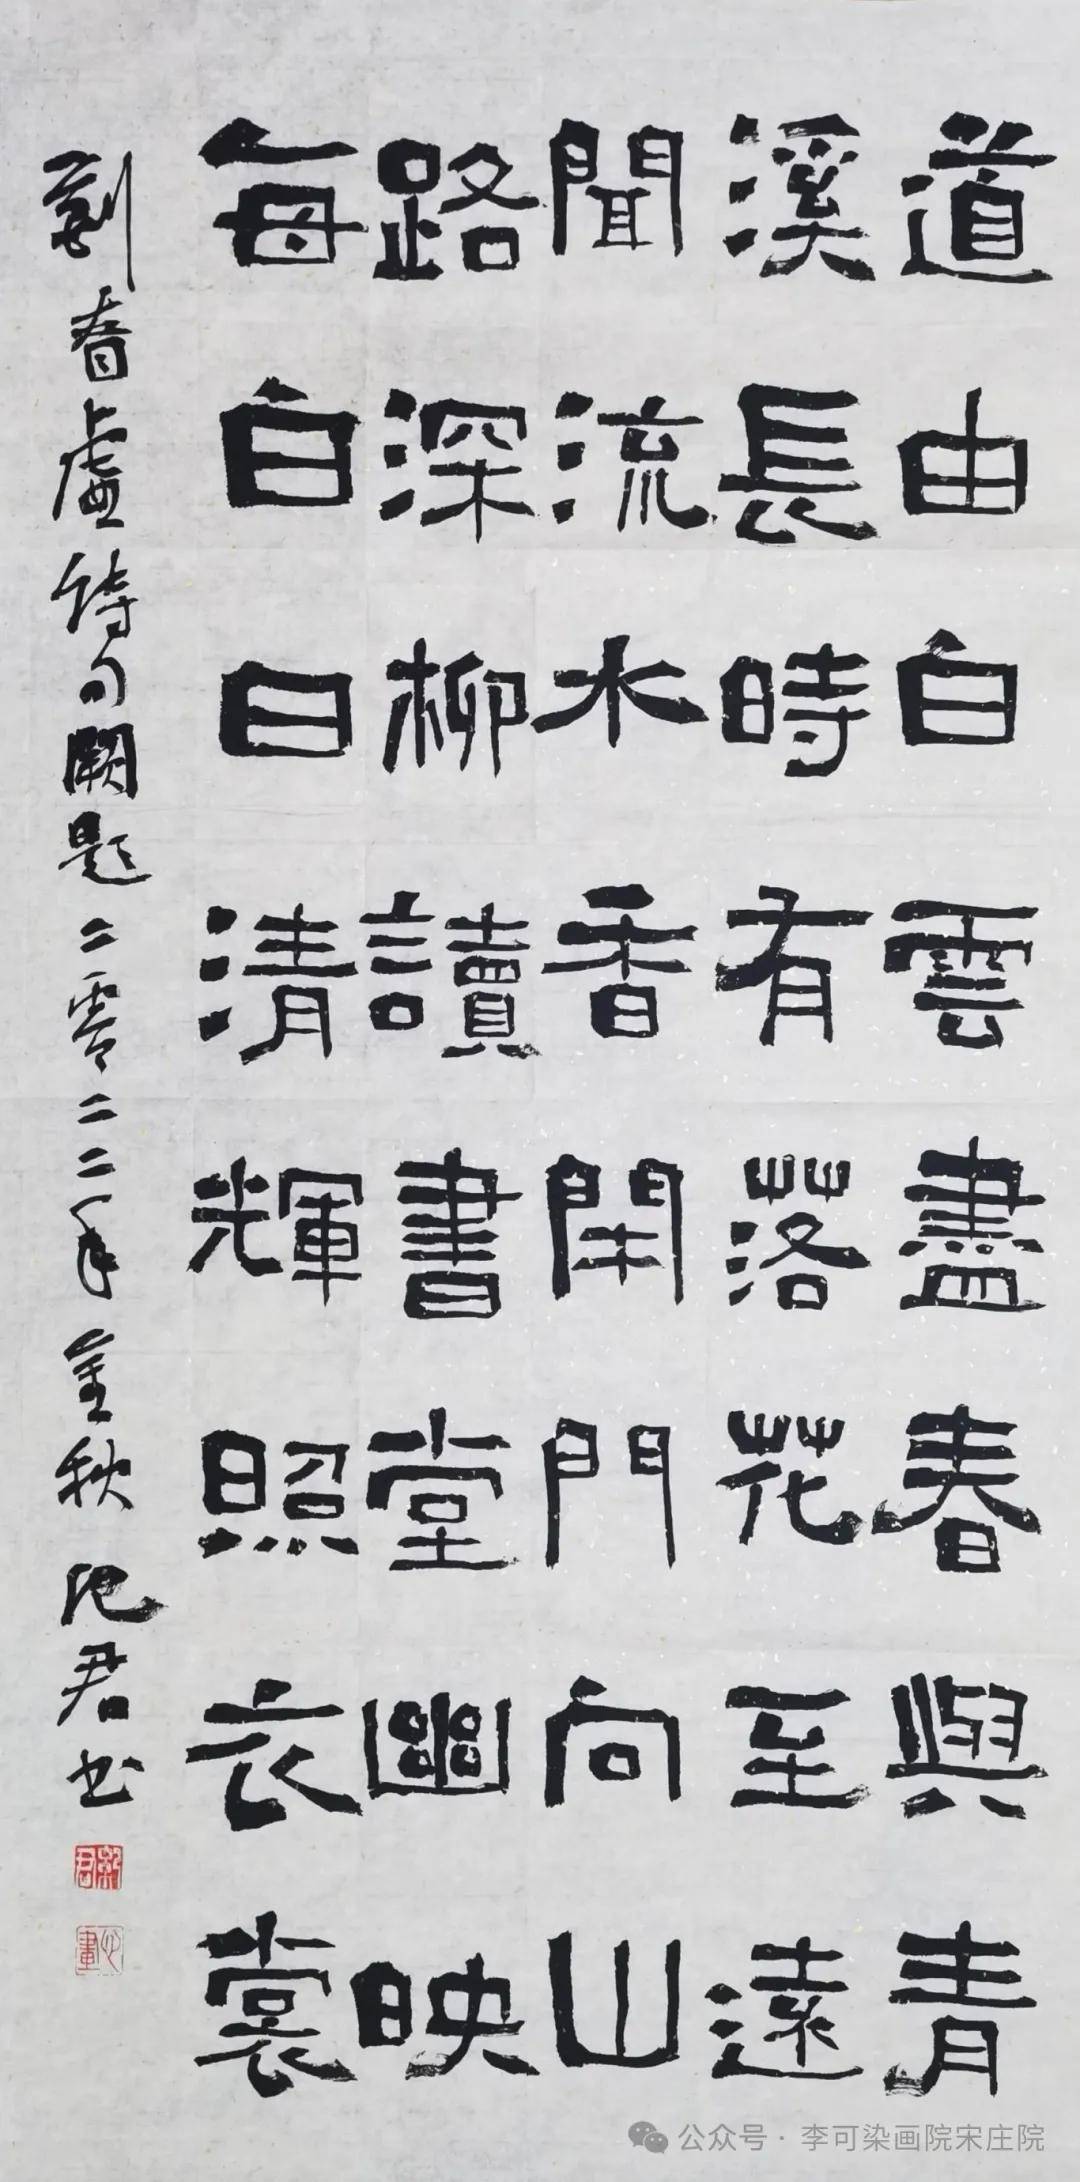 道由白雲盡春與青
溪長時有落花至遠
聞流水香閑門向山
路深柳讀書堂幽映
每白日清輝照衣裳
劉眘虛詩句闕題二零二二年金秋 君书
公众号·李可染画院宋庄院